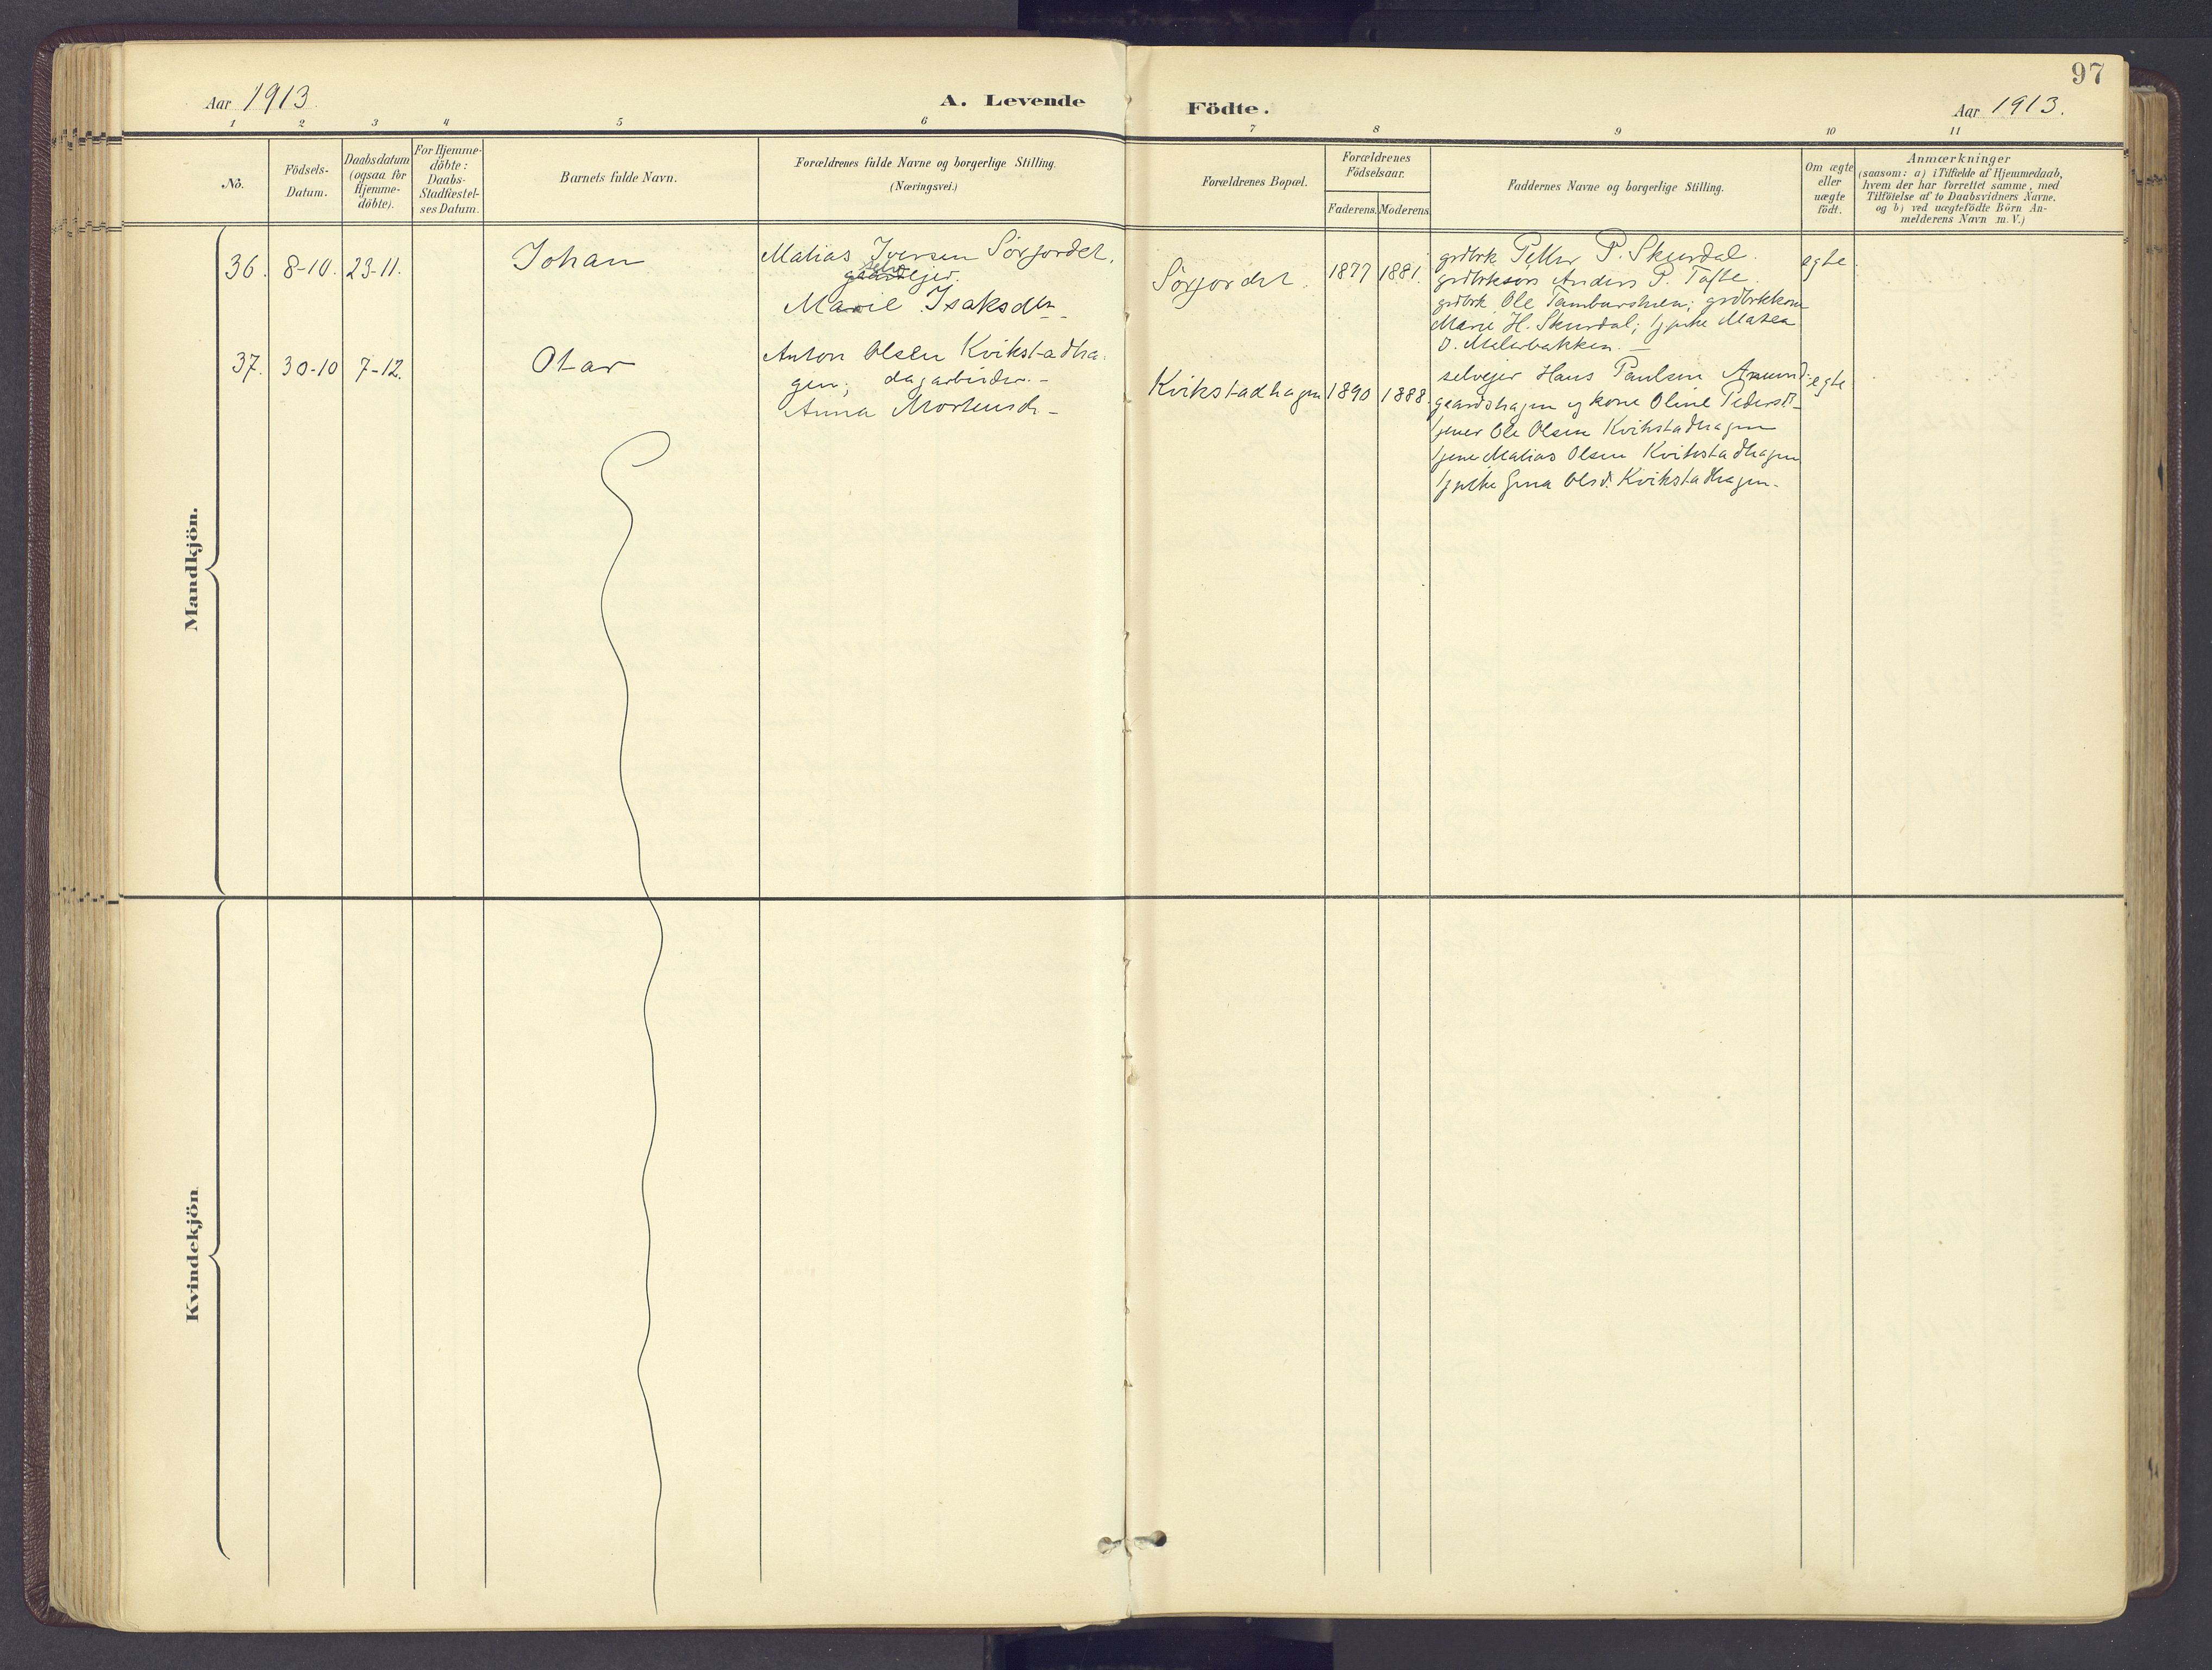 97
Aar 1913.
A. Levende Födte.
Aar 1913.
1 2 3 4 5 6 7 8 9 10 11
No.
Födsels-
Datum.
Daabsdatum
(ogsaa for
Hjemme-
döbte).
For Hjemme-
döbte:
Daabs-
Stadfæstel-
ses Datum.
Barnets fulde Navn.
Forældrenes fulde Navne og borgerlige Stilling.
(Næringsvei.)
Forældrenes Bopæl.
Forældrenes
Födselsaar.
Faderens. Moderens.
Faddernes Navne og borgerlige Stilling.
Om ægte
eller
uægte
født.
Anmærkninger
(saasom: a) i Tilfælde af Hjemmedaab,
hvem der har forrettet samme, med
Tilföielse af to Daabsvidners Navne.
og b) ved uægtefödte Börn An-
melderens Navn m. V.)
Mandkjön.
36. 8-10. 23-11.
Johan
Matias Iversen Sörjordet.
selv
gaardejer.
Marie Isaksdtr.
Sörjordet.
1877 1881.
grdbrk Petter P. Skurdal.
grdbrksøn Anders P. Tofte
grdbrk Ole Tamburstuen; grdbrkkone
Marie H. Skurdal; tjpike Matea
O. Melerbakken. —
egte
37. 30-10 7-12.
Otar
Anton Olsen Kvikstadha-
gen; dagarbeider. -
Anna Mortensdr -
Kvikstadhagen
1890 1888.
selvejer Hans Paulsen Amund-
gaardshagen og kone Oline Pedersdr -
tjener Ole Olsen Kvikstadhagen
tjener Matias Olsen Kvikstadhagen
tjpike Gina Olsd. Kvikstadhagen.
egte
Kvindekjön